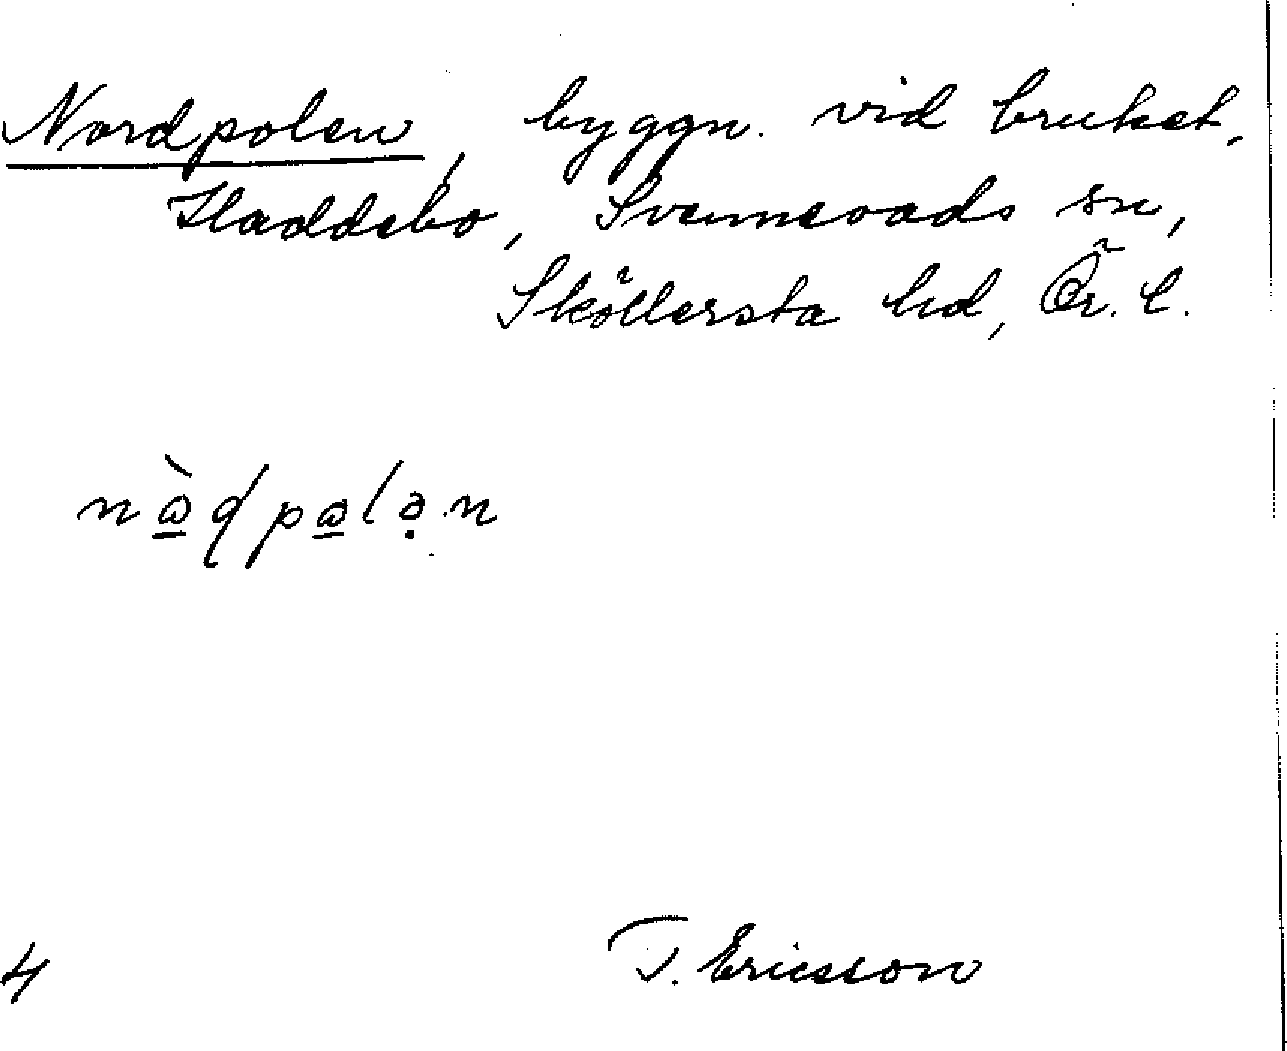 Nordpolen, byggn. vid bruket,
Haddebo, Svennevads sn,
Sköllersta hd, Ör. l.
T. Ericsson
4